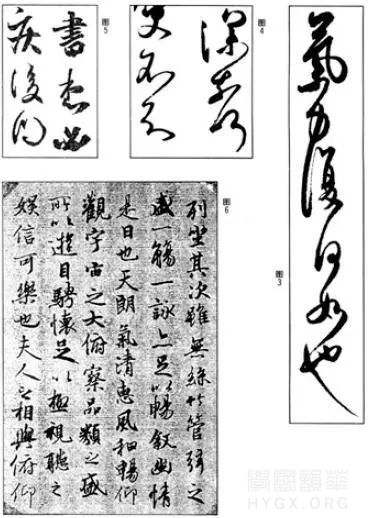 氣力復何如也
图3
图4
書
疾後
图5
列坐其次雖無絲竹管弦之
盛一觴一詠亦足以暢敘幽情
是日也天朗氣清惠風和暢仰
觀宇宙之大俯察品類之盛
所以遊目騁懷足以極視聽之
娛信可樂也夫人之相與俯仰
图6
HYGX.ORG